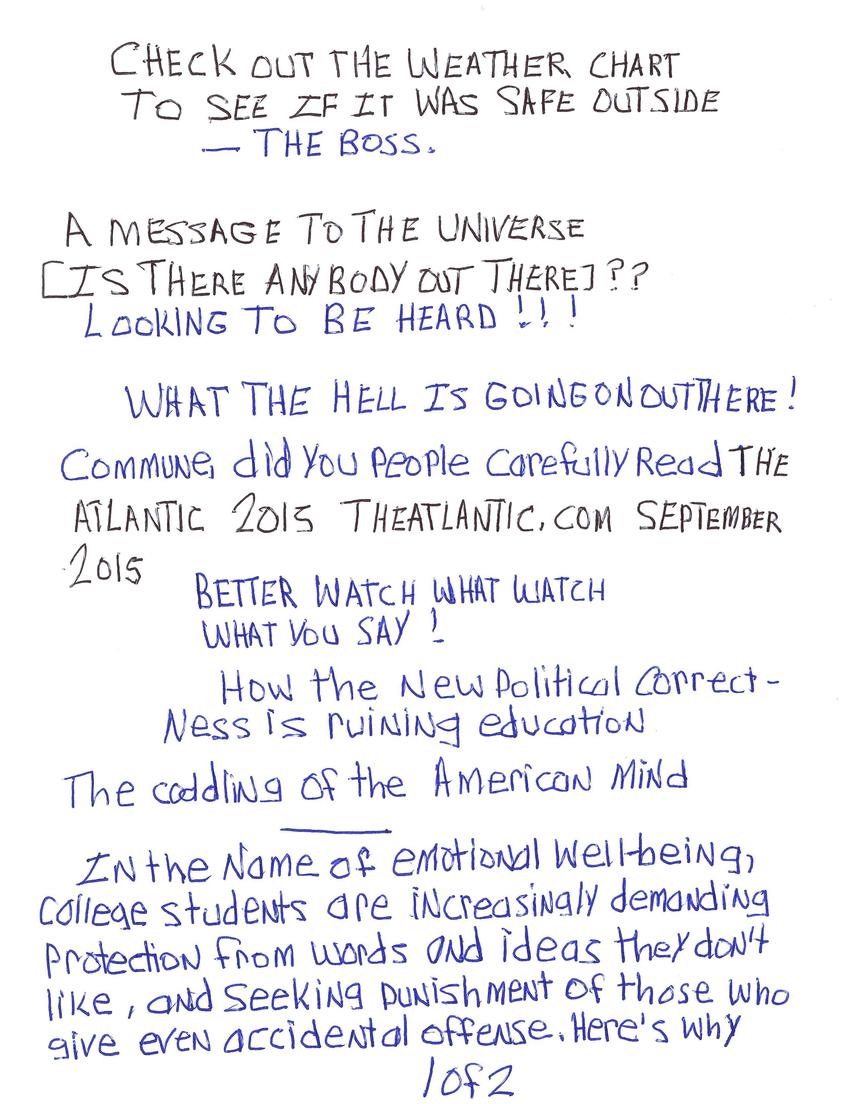 CHECK OUT THE WEATHER CHART
TO SEE IF IT WAS SAFE OUTSIDE
— THE BOSS.
A MESSAGE TO THE UNIVERSE
[IS THERE ANYBODY OUT THERE]??
LOOKING TO BE HEARD!!!
WHAT THE HELL IS GOING ON OUT THERE!
Commune, did you people carefully Read THE
ATLANTIC 2015 THEATLANTIC.COM SEPTEMBER
2015
BETTER WATCH WHAT WATCH
WHAT YOU SAY!
How the New Political Correct-
Ness is ruining education
The coddling of the American Mind
In the Name of emotional Well-being,
college students are increasingly demanding
protection from words and ideas they don't
like, and seeking punishment of those who
give even accidental offense. Here's why
1 of 2